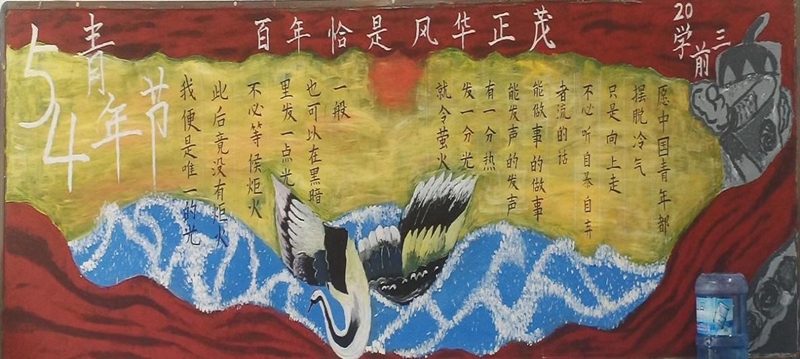 百年恰是风华正茂
20
学前三
54
青年节
愿中国青年都
摆脱冷气
只是向上走
不必听自暴自弃
者流的话
能做事的做事
能发声的发声
有一分热
发一分光
就令萤火
一般
也可以在黑暗
里发一点光
不必等候炬火
此后竟没有炬火
我便是唯一的光